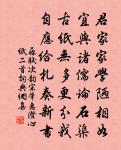 君家家學陋相如
宜與諸儒論石渠
古紙無多更分我
自應給札奏新書
蘇軾次韻宋肇惠澄心
紙二首詞典網集